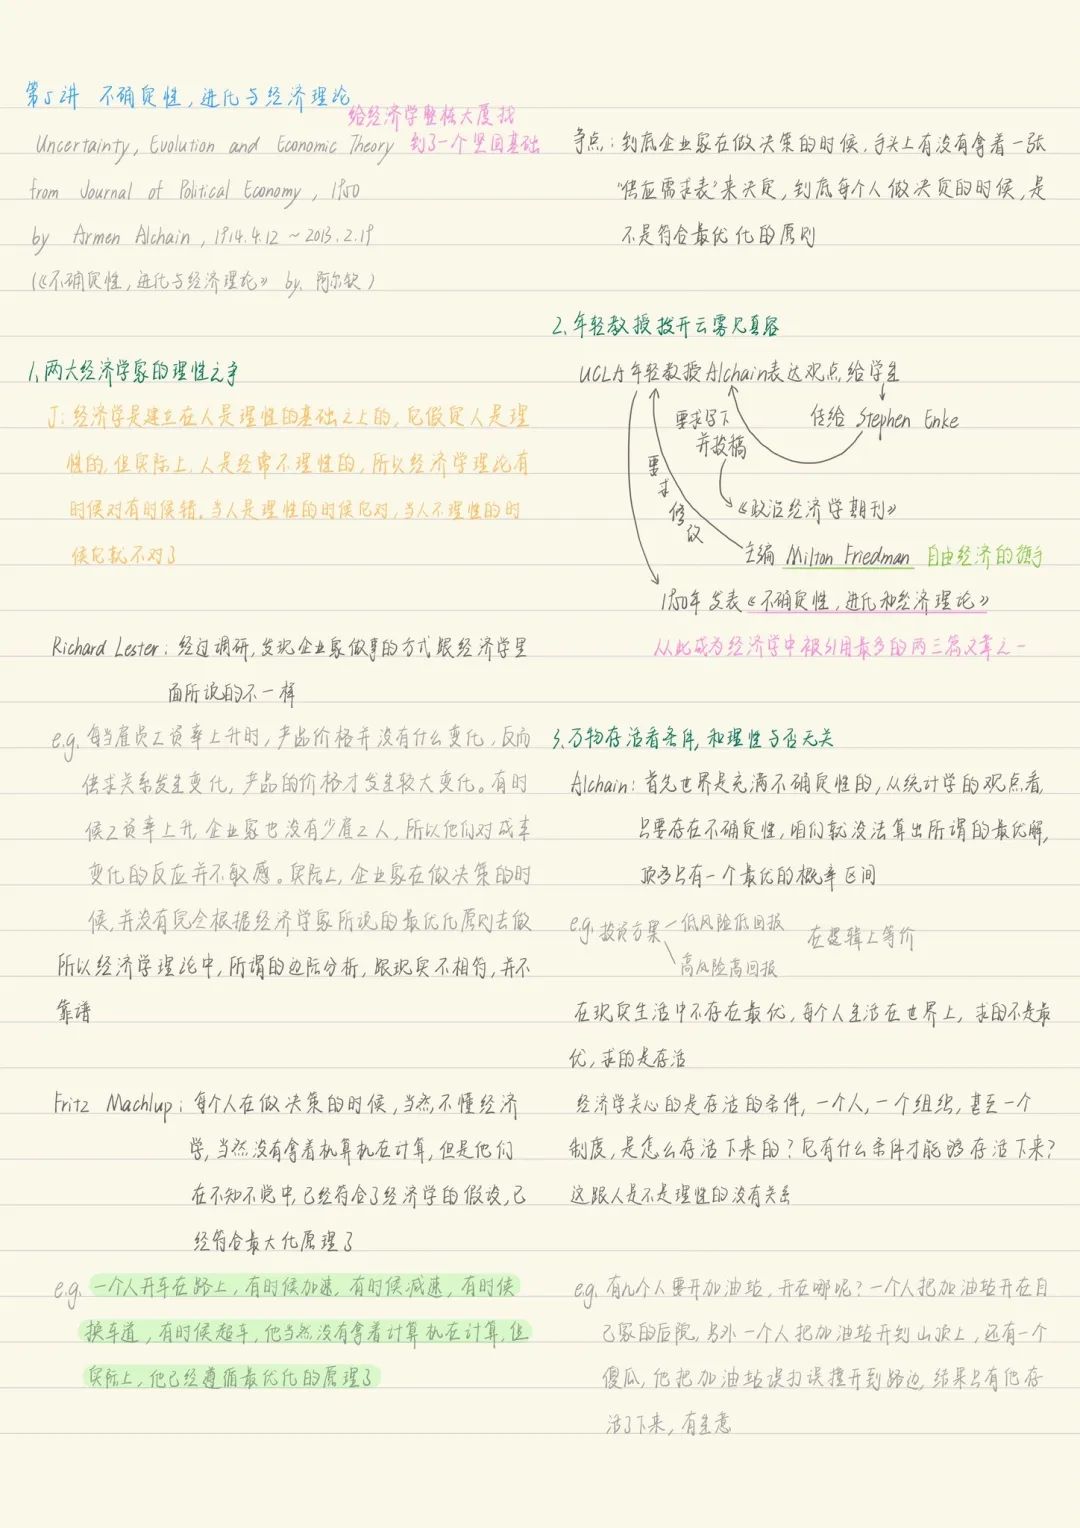 第5讲 不确定性，进化与经济理论
给经济学整栋大厦找
到了一个坚固基础
Uncertainty, Evolution and Economic Theory
from Journal of Political Economy, 1950
by Armen Alchain, 1914.4.12 ~ 2013.2.19
(《不确定性，进化与经济理论》 by. 阿尔钦)
1、两大经济学家的理性之争
J: 经济学是建立在人是理性的基础之上的，它假定人是理
性的，但实际上，人是经常不理性的，所以经济学理论有
时候对有时候错。当人是理性的时候它对，当人不理性的时
候它就不对了
Richard Lester: 经过调研，发现企业家做事的方式跟经济学里
面所说的不一样
e.g. 每当雇员工资率上升时，产品价格并没有什么变化，反而
供求关系发生变化，产品的价格才发生较大变化。有时
候工资率上升，企业家也没有少雇工人，所以他们对成本
变化的反应并不敏感。实际上，企业家在做决策的时
候，并没有完全根据经济学家所说的最优化原则去做
所以经济学理论中，所谓的边际分析，跟现实不相符，并不
靠谱
Fritz Machlup: 每个人在做决策的时候，当然不懂经济
学，当然没有拿着机算机在计算，但是他们
在不知不觉中，已经符合了经济学的假设，已
经符合最大化原理了
e.g. 一个人开车在路上，有时候加速，有时候减速，有时候
换车道，有时候超车，他当然没有拿着计算机在计算，但
实际上，他已经遵循最优化的原理了
争点：到底企业家在做决策的时候，手头上有没有拿着一张
“供应需求表”来决定，到底每个人做决定的时候，是
不是符合最优化的原则
2、年轻教授拨开云雾见真容
UCLA年轻教授Alchain表达观点给学生
传给 Stephen Enke
要求写下
并投稿
《政治经济学期刊》
要求修改
主编 Milton Friedman 自由经济的旗手
1950年发表《不确定性，进化和经济理论》
从此成为经济学中被引用最多的两三篇文章之一
3、万物存活看条件，和理性与否无关
Alchain: 首先世界是充满不确定性的，从统计学的观点看，
只要存在不确定性，咱们就没法算出所谓的最优解，
顶多只有一个最优的概率区间
e.g. 投资方案 低风险低回报 在逻辑上等价
高风险高回报
在现实生活中不存在最优，每个人生活在世界上，求的不是最
优，求的是存活
经济学关心的是存活的条件，一个人，一个组织，甚至一个
制度，是怎么存活下来的？它有什么条件才能够存活下来？
这跟人是不是理性的没有关系
e.g. 有几个人要开加油站，开在哪呢？一个人把加油站开在自
己家的后院，另外一个人把加油站开到山顶上，还有一个
傻瓜，他把加油站误打误撞开到路边，结果只有他存
活了下来，有生意